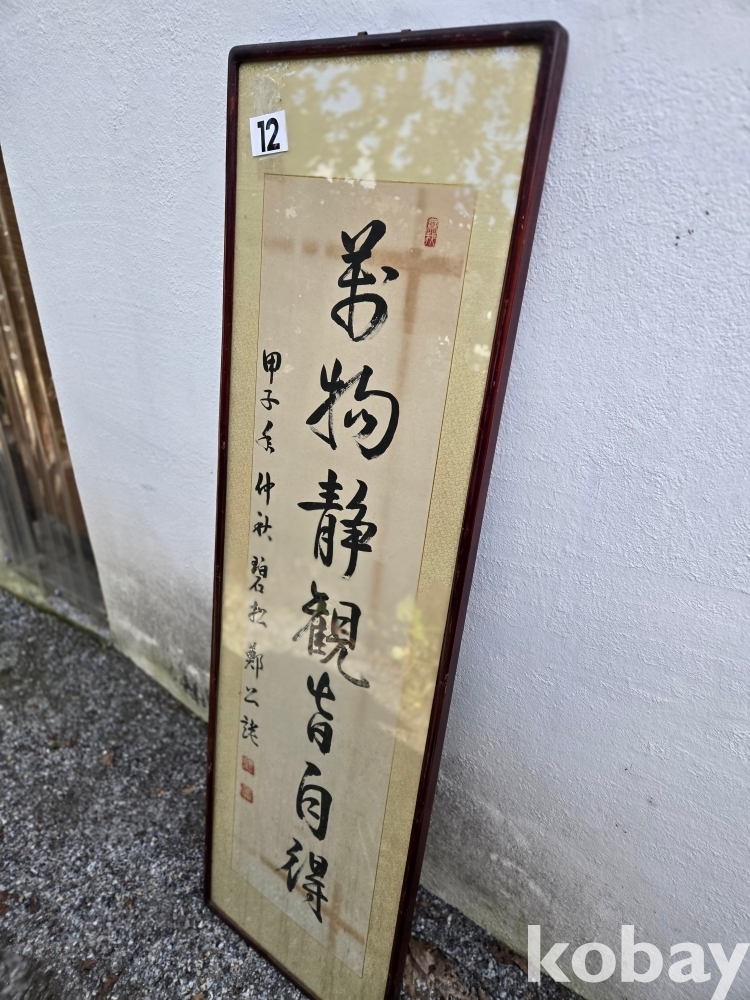 12
萬物静觀皆自得
甲子年仲秋 碧松 鄭公
kobay